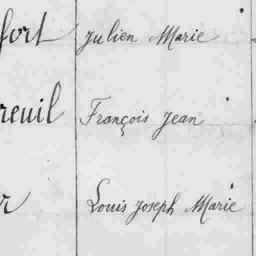 fort Julien Marie
reuil François Jean
r Louis Joseph Marie